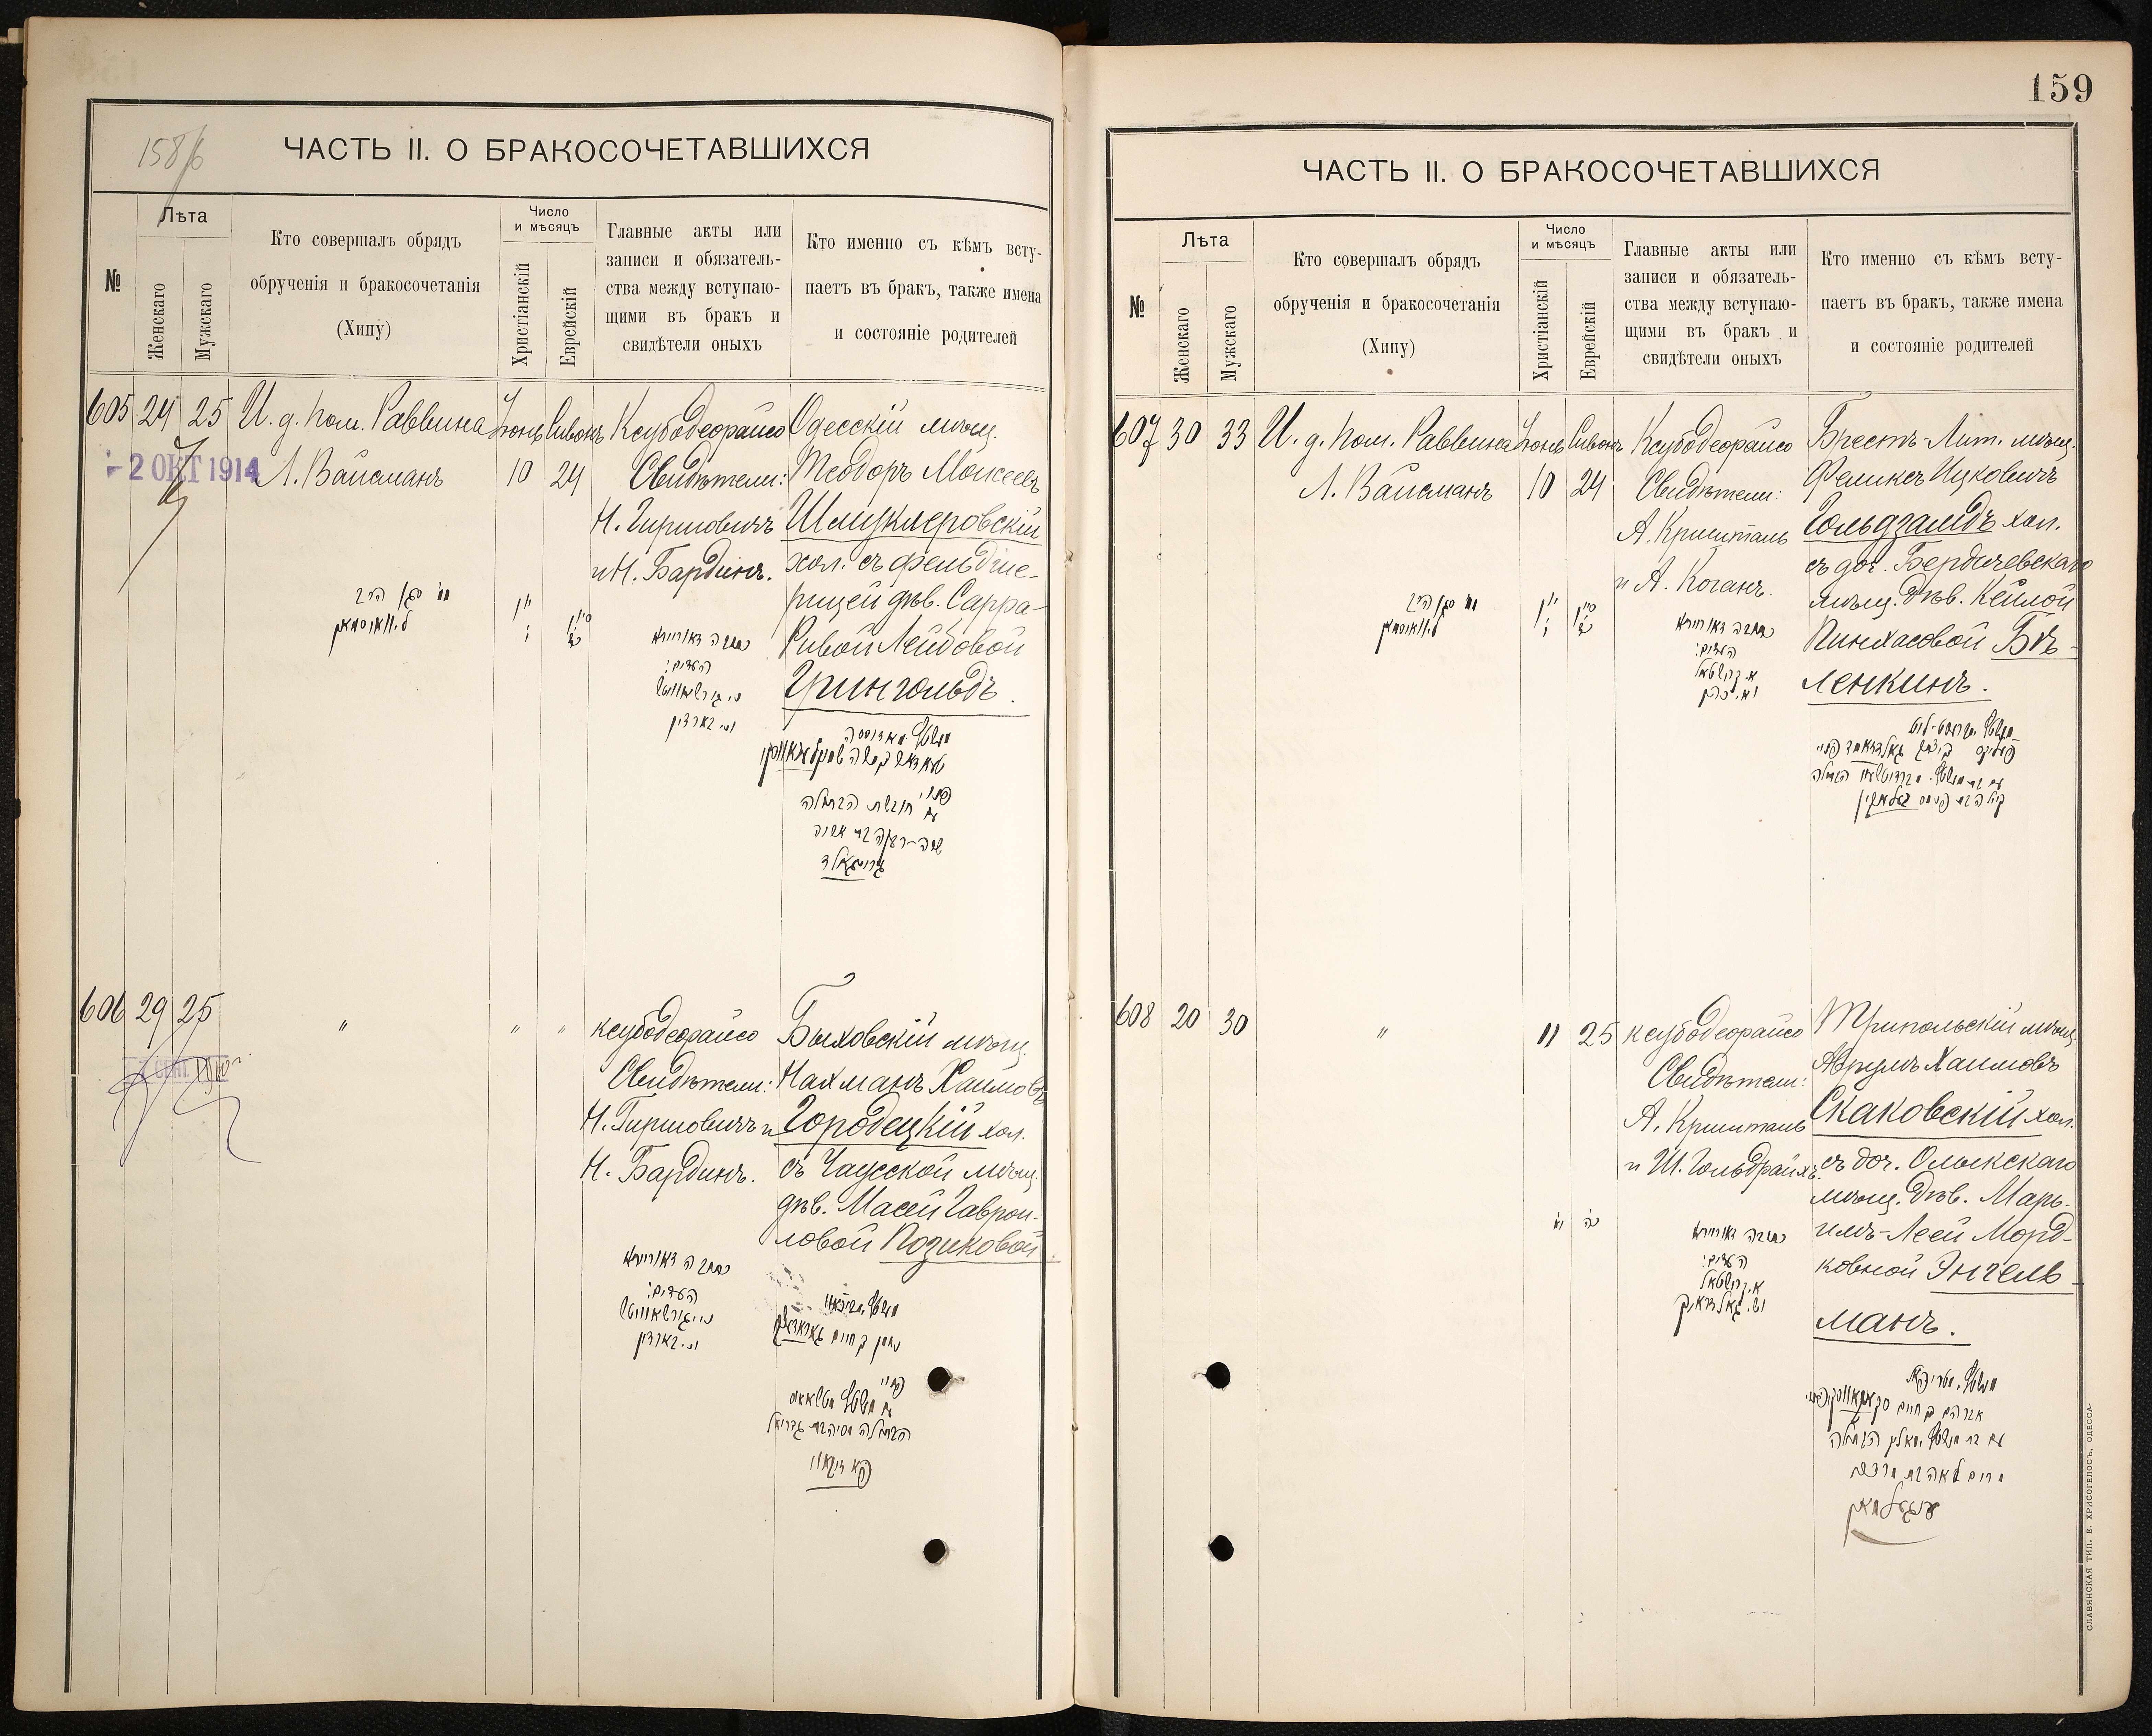 158/б
ЧАСТЬ II. О БРАКОСОЧЕТАВШИХСЯ
№
Лѣта
Женскаго
Мужскаго
Кто совершалъ обрядъ
обрученія и бракосочетанія
(Хипу)
Число
и мѣсяцъ
Христіанскій
Еврейскій
Главные акты или
записи и обязатель-
ства между вступаю-
щими въ бракъ и
свидѣтели оныхъ
Кто именно съ кѣмъ всту-
паетъ въ бракъ, также имена
и состояніе родителей
605 24 25 И. д. пом. Раввина
Л. Вайсманъ
- 2 ОКТ 1914
Іюнь
10
Сивонъ
24
Ксубодеорайсо
Свидѣтели:
Н. Гиршовичъ
и Н. Бардинъ.
Одесскій мѣщ.
Теодоръ Моисеевъ
Шмуклеровскій
хол. съ фельдше-
рицей дѣв. Сарра-
Ривой Лейбовой
Грингольдъ.
יוני
י׳
סיון
כתבה דאורייתא
העדים:
נ. גירשאוויטש
ונ. בארדין
606 29 25 " " "
ксубодеорайсо
Свидѣтели:
Н. Гиршовичъ и
Н. Бардинъ.
Быховскій мѣщ.
Нахманъ Хаимовъ
Городецкій хол.
съ Чаусской мѣщ.
дѣв. Масей Гавріи-
ловой Позиковой
כתבה דאורייתא
העדים:
נ. גירשאוויטש
ונ. בארדין
159
ЧАСТЬ II. О БРАКОСОЧЕТАВШИХСЯ
№
Лѣта
Женскаго
Мужскаго
Кто совершалъ обрядъ
обрученія и бракосочетанія
(Хипу)
Число
и мѣсяцъ
Христіанскій
Еврейскій
Главные акты или
записи и обязатель-
ства между вступаю-
щими въ бракъ и
свидѣтели оныхъ
Кто именно съ кѣмъ всту-
паетъ въ бракъ, также имена
и состояніе родителей
607 30 33 И. д. пом. Раввина
Л. Вайсманъ
Іюнь
10
Сивонъ
24
Ксубодеорайсо
Свидѣтели:
А. Кришталь
и А. Коганъ.
Брестъ-Лит. мѣщ.
Феликсъ Ицковичъ
Гольдзамдъ хол.
съ доч. Бердичевскаго
мѣщ. дѣв. Кейлой
Пинхасовой Бѣ-
ленкинъ.
יוני
י׳
סיון
כתבה דאורייתא
העדים:
א. קרישטאל
וא. כהן
608 20 30 " 11 25
ксубодеорайсо
Свидѣтели:
А. Кришталь
и Ш. Гольдрайхъ.
Трипольскій мѣщ.
Аврумъ Хаимовъ
Скаковскій хол.
съ доч. Олыкскаго
мѣщ. дѣв. Марь-
имъ-Леей Морд-
ковной Энгель-
манъ.
כתבה דאורייתא
העדים:
א. קרישטאל
СЛАВЯНСКАЯ ТИП. Е. ХРИСОГЕЛОСЪ, ОДЕССА-